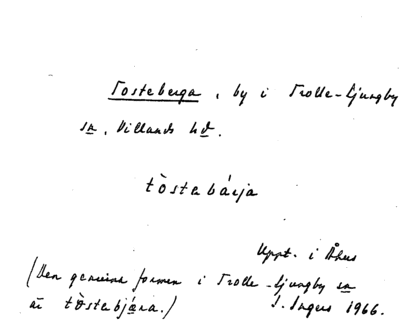 Tosteberga, by i Trolle-Ljungby
sn, Villands hd.
tòstebárja
Uppt. i Åhus
(Den genuina formen i Trolle-Ljungby sn
är tòstebjära.)
I. Ingers 1966.